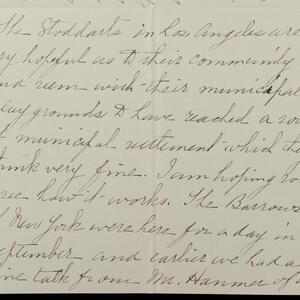 The Stoddarts in Los Angeles are
hopeful as to their community
and with their municipal
play grounds to have reached a
municipal settlement which the
think very fine. I am hoping to
see how it works. The Barrows
New York were here for a day in
September and earlier we had a
fine talk from Mr. Hanmer of